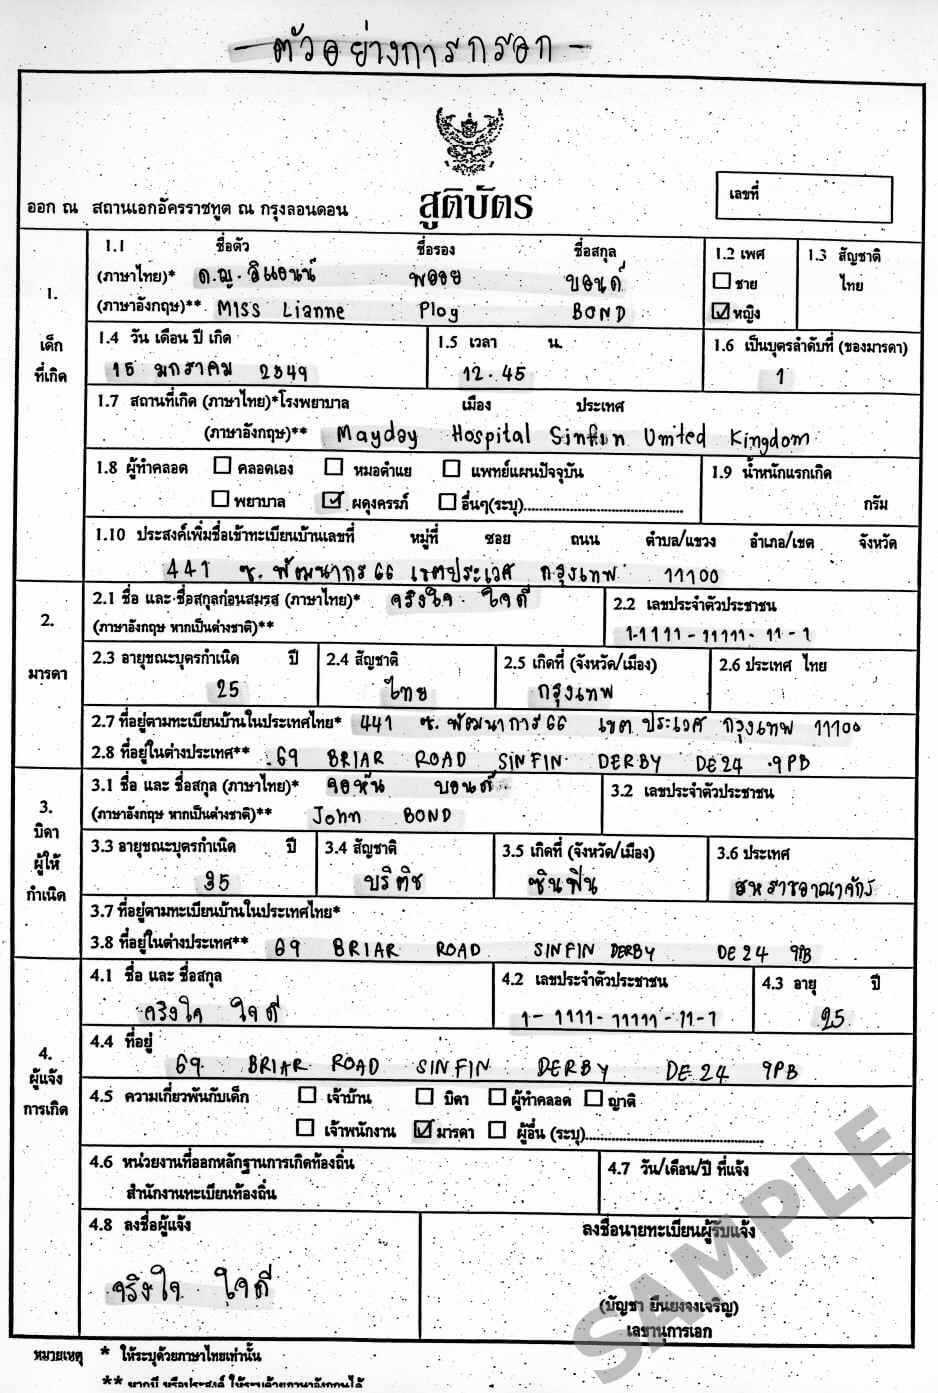 - ตัวอย่างการกรอก -
ออก ณ สถานเอกอัครราชทูต ณ กรุงลอนดอน
สูติบัตร
เลขที่
1. เด็กที่เกิด
1.1 ชื่อตัว ชื่อรอง ชื่อสกุล
(ภาษาไทย)* ด.ญ. ลิแอนน์ พลอย บอนด์
(ภาษาอังกฤษ)** MISS Lianne Ploy BOND
1.2 เพศ
ชาย
หญิง
1.3 สัญชาติ
ไทย
1.4 วัน เดือน ปี เกิด
15 มกราคม 2549
1.5 เวลา น.
12.45
1.6 เป็นบุตรลำดับที่ (ของมารดา)
1
1.7 สถานที่เกิด (ภาษาไทย)*โรงพยาบาล เมือง ประเทศ
(ภาษาอังกฤษ)** Mayday Hospital Sinfin United Kingdom
1.8 ผู้ทำคลอด คลอดเอง หมอตำแย แพทย์แผนปัจจุบัน
พยาบาล ผดุงครรภ์ อื่นๆ(ระบุ)........................................
1.9 น้ำหนักแรกเกิด
กรัม
1.10 ประสงค์เพิ่มชื่อเข้าทะเบียนบ้านเลขที่ หมู่ที่ ซอย ถนน ตำบล/แขวง อำเภอ/เขต จังหวัด
441 ซ. พัฒนาการ 66 เขตประเวศ กรุงเทพ 11100
2. มารดา
2.1 ชื่อ และ ชื่อสกุลก่อนสมรส (ภาษาไทย)* จริงใจ ใจดี
(ภาษาอังกฤษ หากเป็นต่างชาติ)**
2.2 เลขประจำตัวประชาชน
1-1111-11111-11-1
2.3 อายุขณะบุตรกำเนิด ปี
25
2.4 สัญชาติ
ไทย
2.5 เกิดที่ (จังหวัด/เมือง)
กรุงเทพ
2.6 ประเทศ ไทย
2.7 ที่อยู่ตามทะเบียนบ้านในประเทศไทย* 441 ซ. พัฒนาการ 66 เขต ประเวศ กรุงเทพ 11100
2.8 ที่อยู่ในต่างประเทศ** 69 BRIAR ROAD SINFIN DERBY DE24 9PB
3. บิดาผู้ให้กำเนิด
3.1 ชื่อ และ ชื่อสกุล (ภาษาไทย)* จอห์น บอนด์
(ภาษาอังกฤษ หากเป็นต่างชาติ)** John BOND
3.2 เลขประจำตัวประชาชน
3.3 อายุขณะบุตรกำเนิด ปี
35
3.4 สัญชาติ
บริติช
3.5 เกิดที่ (จังหวัด/เมือง)
ซินฟิน
3.6 ประเทศ
สหราชอาณาจักร
3.7 ที่อยู่ตามทะเบียนบ้านในประเทศไทย*
3.8 ที่อยู่ในต่างประเทศ** 69 BRIAR ROAD SINFIN DERBY DE24 9PB
4. ผู้แจ้งการเกิด
4.1 ชื่อ และ ชื่อสกุล
จริงใจ ใจดี
4.2 เลขประจำตัวประชาชน
1-1111-11111-11-1
4.3 อายุ ปี
25
4.4 ที่อยู่
69 BRIAR ROAD SINFIN DERBY DE24 9PB
4.5 ความเกี่ยวพันกับเด็ก เจ้าบ้าน บิดา ผู้ทำคลอด ญาติ
เจ้าพนักงาน มารดา ผู้อื่น (ระบุ)........................................
4.6 หน่วยงานที่ออกหลักฐานการเกิดท้องถิ่น
สำนักงานทะเบียนท้องถิ่น
4.7 วัน/เดือน/ปี ที่แจ้ง
4.8 ลงชื่อผู้แจ้ง
จริงใจ ใจดี
ลงชื่อนายทะเบียนผู้รับแจ้ง
(บัญชา ยืนยงจงเจริญ)
เลขานุการเอก
SAMPLE
หมายเหตุ * ให้ระบุด้วยภาษาไทยเท่านั้น
** หากมี หรือประสงค์ ให้ระบุด้วยภาษาอังกฤษได้